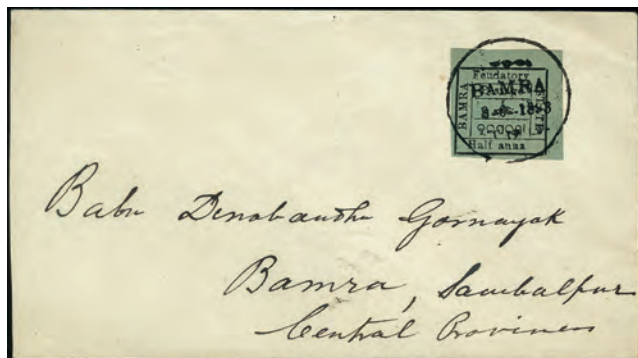 Feudatory
BAMRA
BAMRA
Half anna
Babu Denobandhu Gornayak
Bamra, Sambalpur
Central Provinces